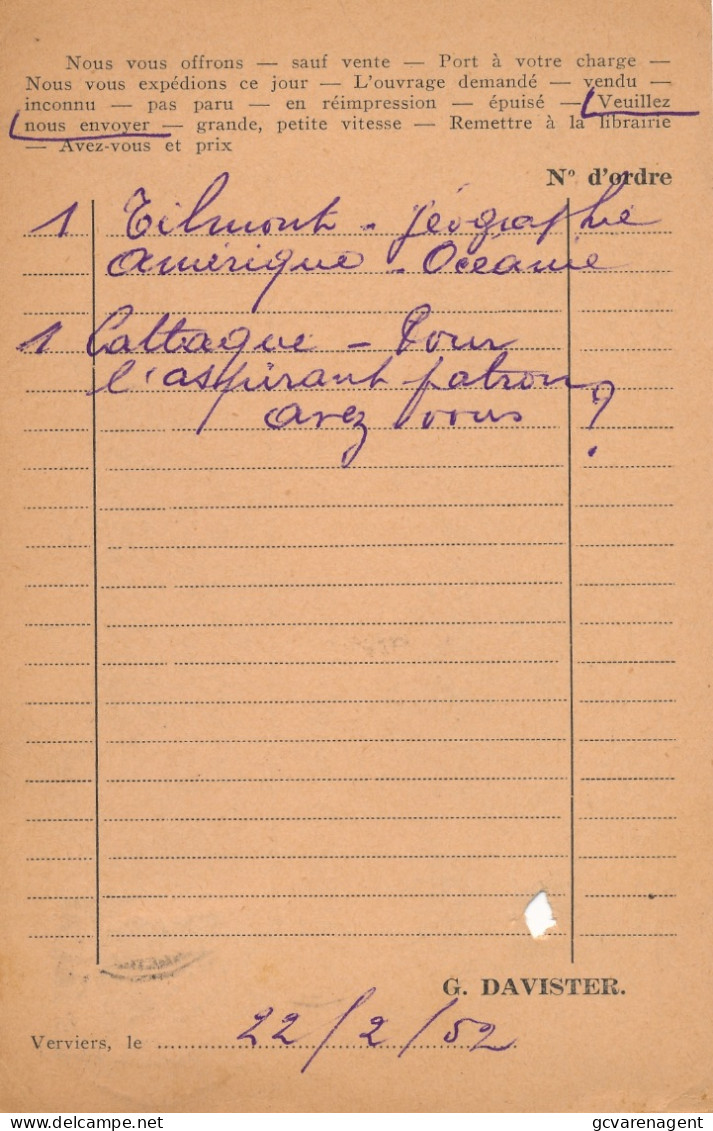 Nous vous offrons — sauf vente — Port à votre charge —
Nous vous expédions ce jour — L'ouvrage demandé — vendu —
inconnu — pas paru — en réimpression — épuisé — Veuillez
nous envoyer — grande, petite vitesse — Remettre à la librairie
— Avez-vous et prix
N° d'ordre
1 Tilmont - géographie
Amérique - Océanie
1 Cattaque - Pour
l'aspirant patron
avez vous ?
G. DAVISTER.
Verviers, le 22/2/52
gcvarenagent